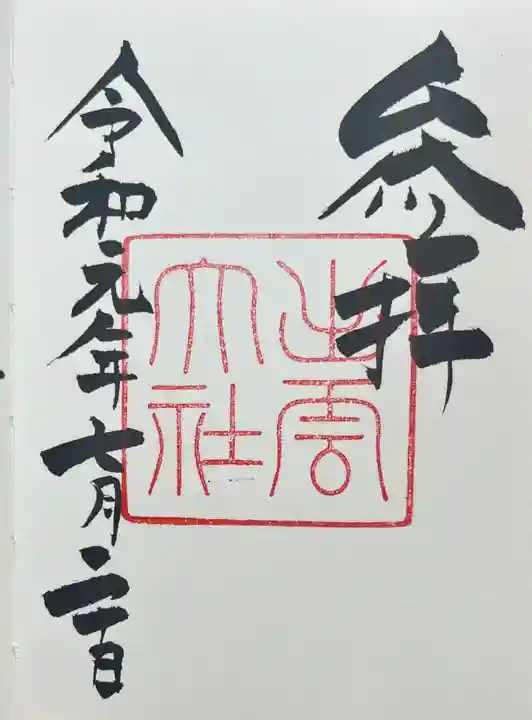 参拝
出雲
大社
令和元年七月日